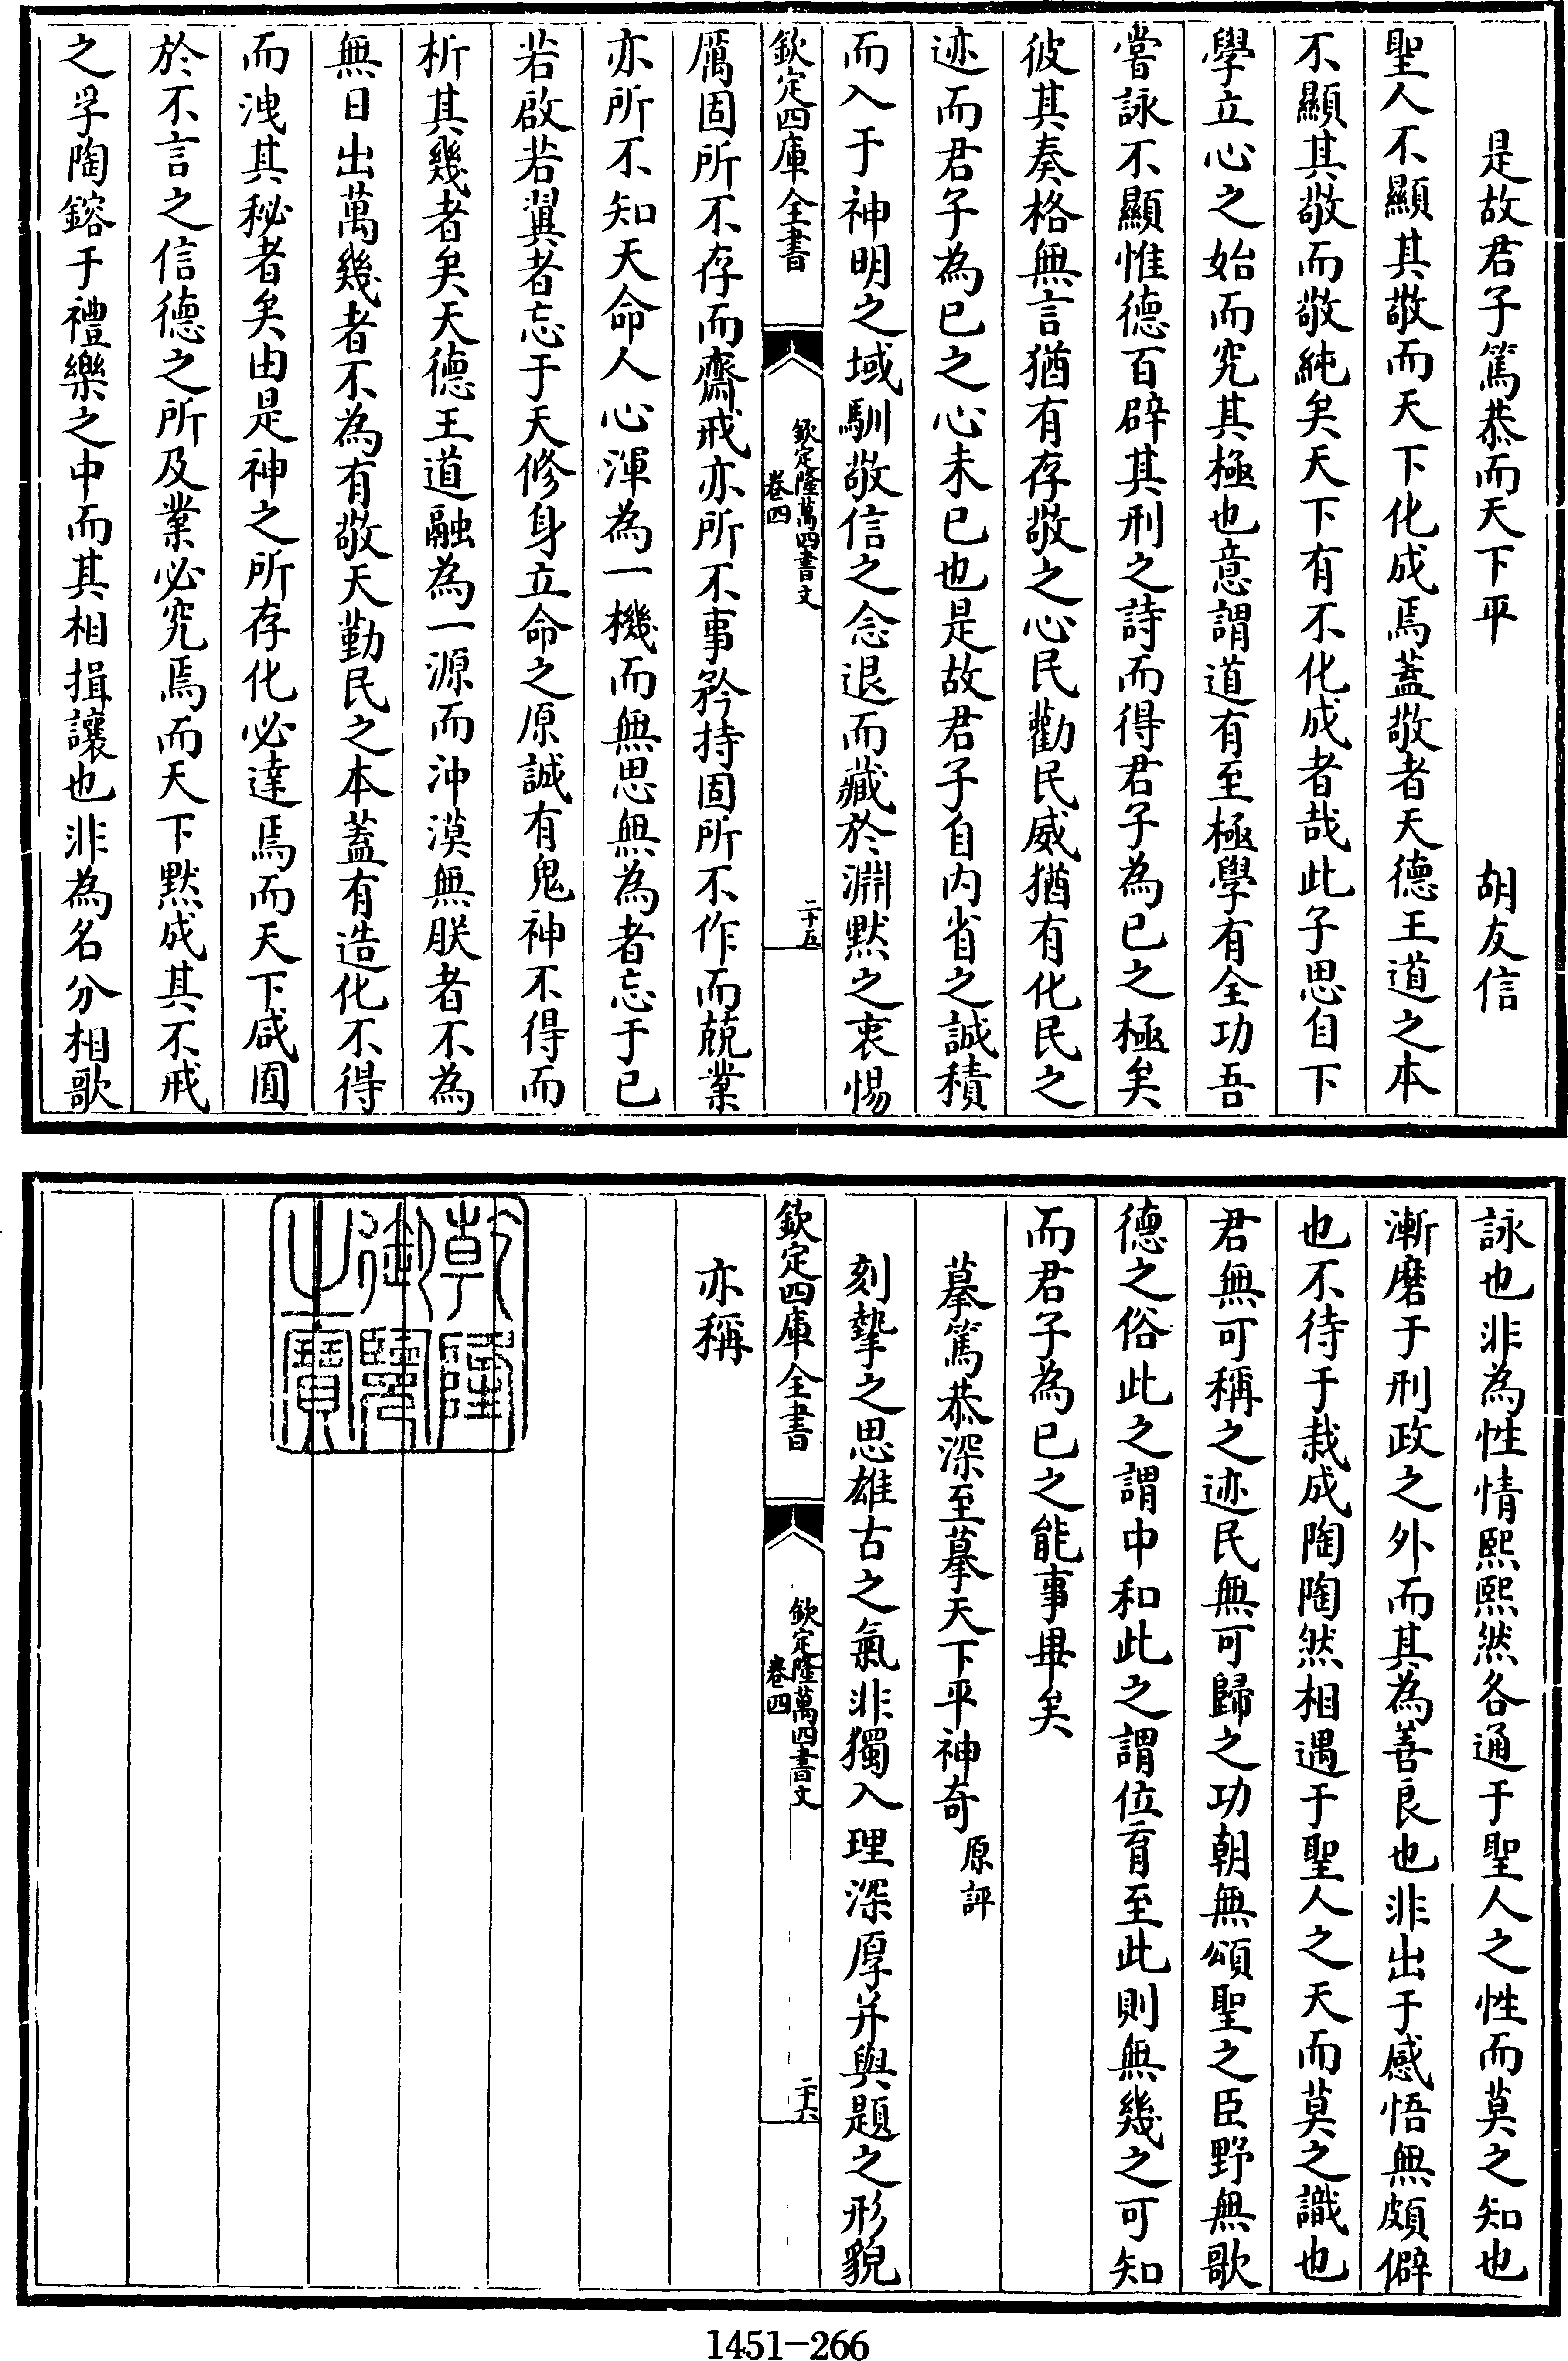 是故君子篤恭而天下平　胡友信
聖人不顯其敬而天下化成焉蓋敬者天德王道之本
不顯其敬而敬純矣天下有不化成者哉此子思自下
學立心之始而究其極也意謂道有至極學有全功吾
嘗詠不顯惟德百辟其刑之詩而得君子為已之極矣
彼其奏格無言猶有存敬之心民勸民威猶有化民之
迹而君子為已之心未已也是故君子自内省之誠積
而入于神明之域馴敬信之念退而藏於淵默之衷惕
欽定四庫全書
欽定隆萬四書文
卷四
二十五
厲固所不存而齋戒亦所不事矜持固所不作而兢業
亦所不知天命人心渾為一機而無思無為者忘于已
若啟若翼者忘于天修身立命之原誠有鬼神不得而
析其幾者矣天德王道融為一源而沖漠無朕者不為
無日出萬幾者不為有敬天勤民之本蓋有造化不得
而洩其秘者矣由是神之所存化必達焉而天下咸囿
於不言之信德之所及業必究焉而天下默成其不戒
之孚陶鎔于禮樂之中而其相揖讓也非為名分相歌
詠也非為性情熙熙然各通于聖人之性而莫之知也
漸磨于刑政之外而其為善良也非出于感悟無頗僻
也不待于栽成陶陶然相遇于聖人之天而莫之識也
君無可稱之迹民無可歸之功朝無頌聖之臣野無歌
德之俗此之謂中和此之謂位育至此則無幾之可知
而君子為已之能事畢矣
摹篤恭深至摹天下平神奇原評
刻摯之思雄古之氣非獨入理深厚并與題之形貌
欽定四庫全書
欽定隆萬四書文
卷四
二十六
亦稱
乾隆
御覽
之寶
1451-266